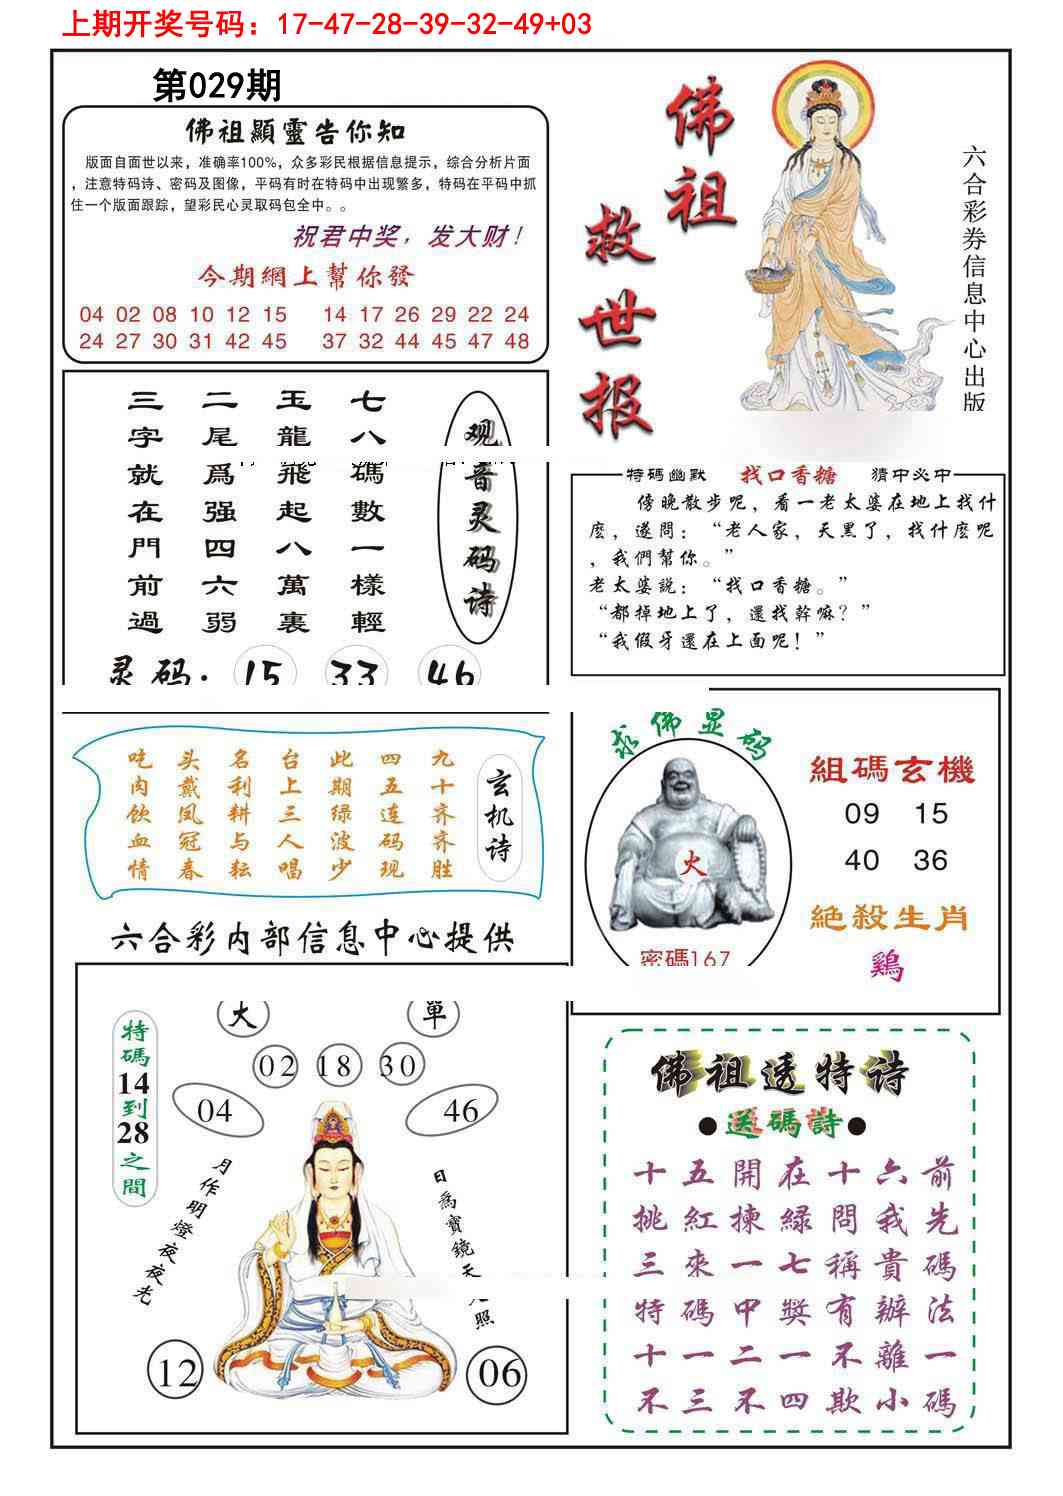 上期开奖号码：17-47-28-39-32-49+03
第029期
佛祖顯靈告你知
版面自面世以来，准确率100%，众多彩民根据信息提示，综合分析片面
，注意特码诗、密码及图像，平码有时在特码中出现繁多，特码在平码中抓
住一个版面跟踪，望彩民心灵取码包全中。。
祝君中奖，发大财！
今期網上幫你發
04 02 08 10 12 15 14 17 26 29 22 24
24 27 30 31 42 45 37 32 44 45 47 48
佛祖
救世报
六合彩券信息中心出版
观音灵码诗
七八碼數一樣輕
玉龍飛起八萬裏
二尾爲强四六弱
三字就在門前過
灵码：15 33 46
特碼幽默 找口香糖 猜中必中
傍晚散步呢，看一老太婆在地上找什
麽，遂問：“老人家，天黑了，找什麽呢
，我們幫你。”
老太婆説：“找口香糖。”
“都掉地上了，還找幹嘛？”
“我假牙還在上面呢！”
玄机诗
九十齐齐胜
四五连码现
此期绿波少
台上三人唱
名利耕与耘
头戴凤冠春
吃肉饮血情
求佛显码
火
密碼167
組碼玄機
09 15
40 36
絶殺生肖
鷄
六合彩内部信息中心提供
特碼14到28之間
大 單
02 18 30
04 46
月作明燈夜夜光
日為寶鏡天
照
12 06
佛祖透特诗
●送碼詩●
十五開在十六前
挑紅揀緑問我先
三來一七稱貴碼
特碼中獎有辦法
十一二一不離一
不三不四欺小碼